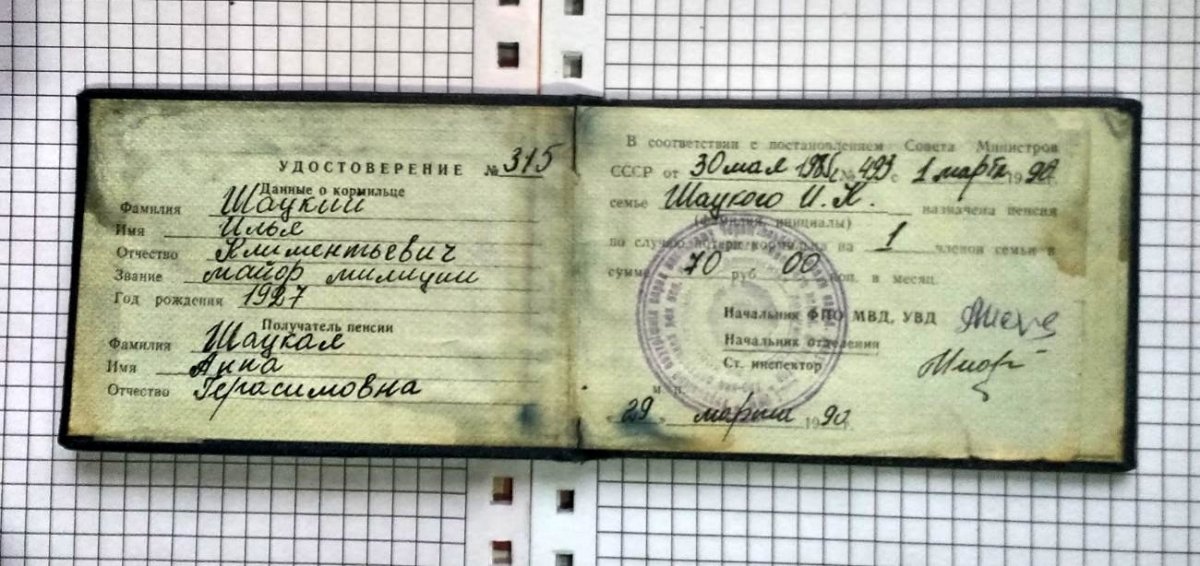 УДОСТОВЕРЕНИЕ № 315
Данные о кормильце
Фамилия Шацкий
Имя Илья
Отчество Климентьевич
Звание майор милиции
Год рождения 1927
Получатель пенсии
Фамилия Шацкая
Имя Анна
Отчество Герасимовна
В соответствии с постановлением Совета Министров
СССР от 30 мая 1985г. № 493 с 1 марта 1990г.
семье Шацкого И. К. назначена пенсия
(фамилия, инициалы)
по случаю потери кормильца на 1 членов семьи в
сумме 70 руб. 00 коп. в месяц.
Начальник ФПО МВД, УВД
Начальник отделения
Ст. инспектор
м. п.
«29» марта 1990г.